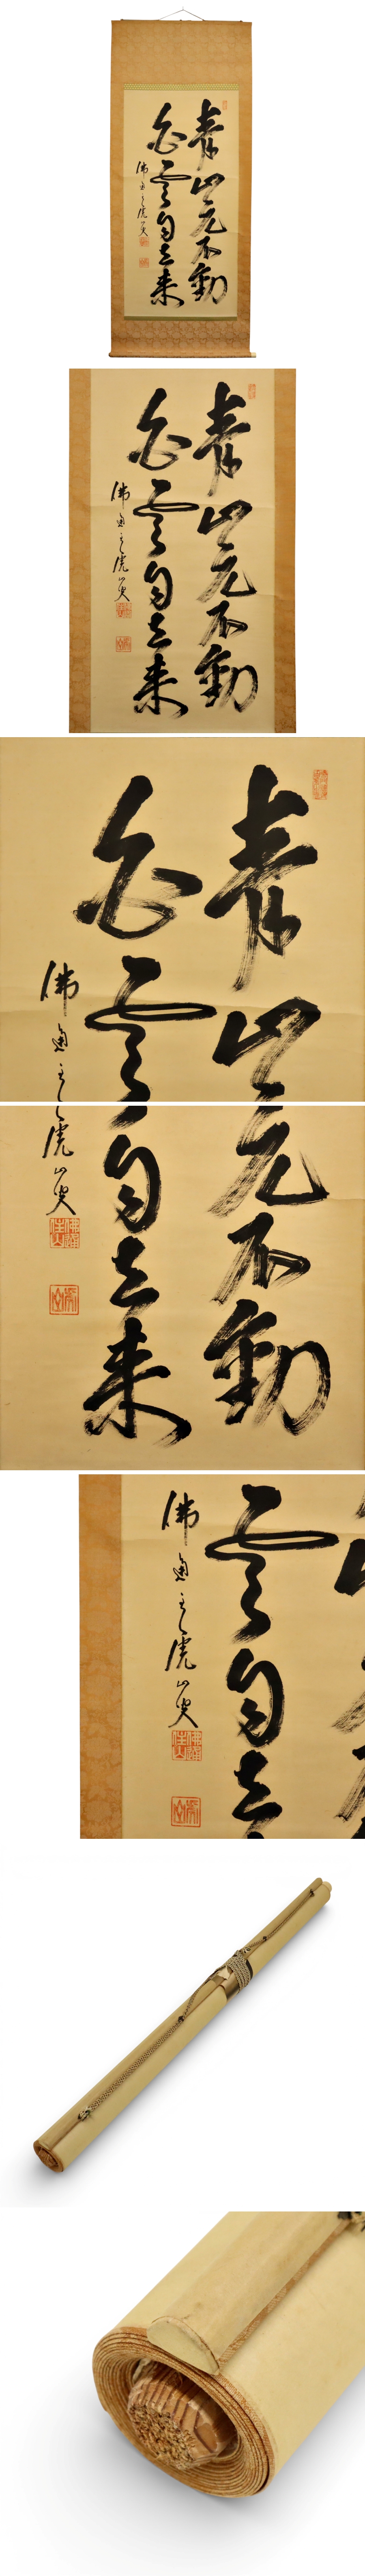 青山元不動
白雲自去来
佛通主虎山叟